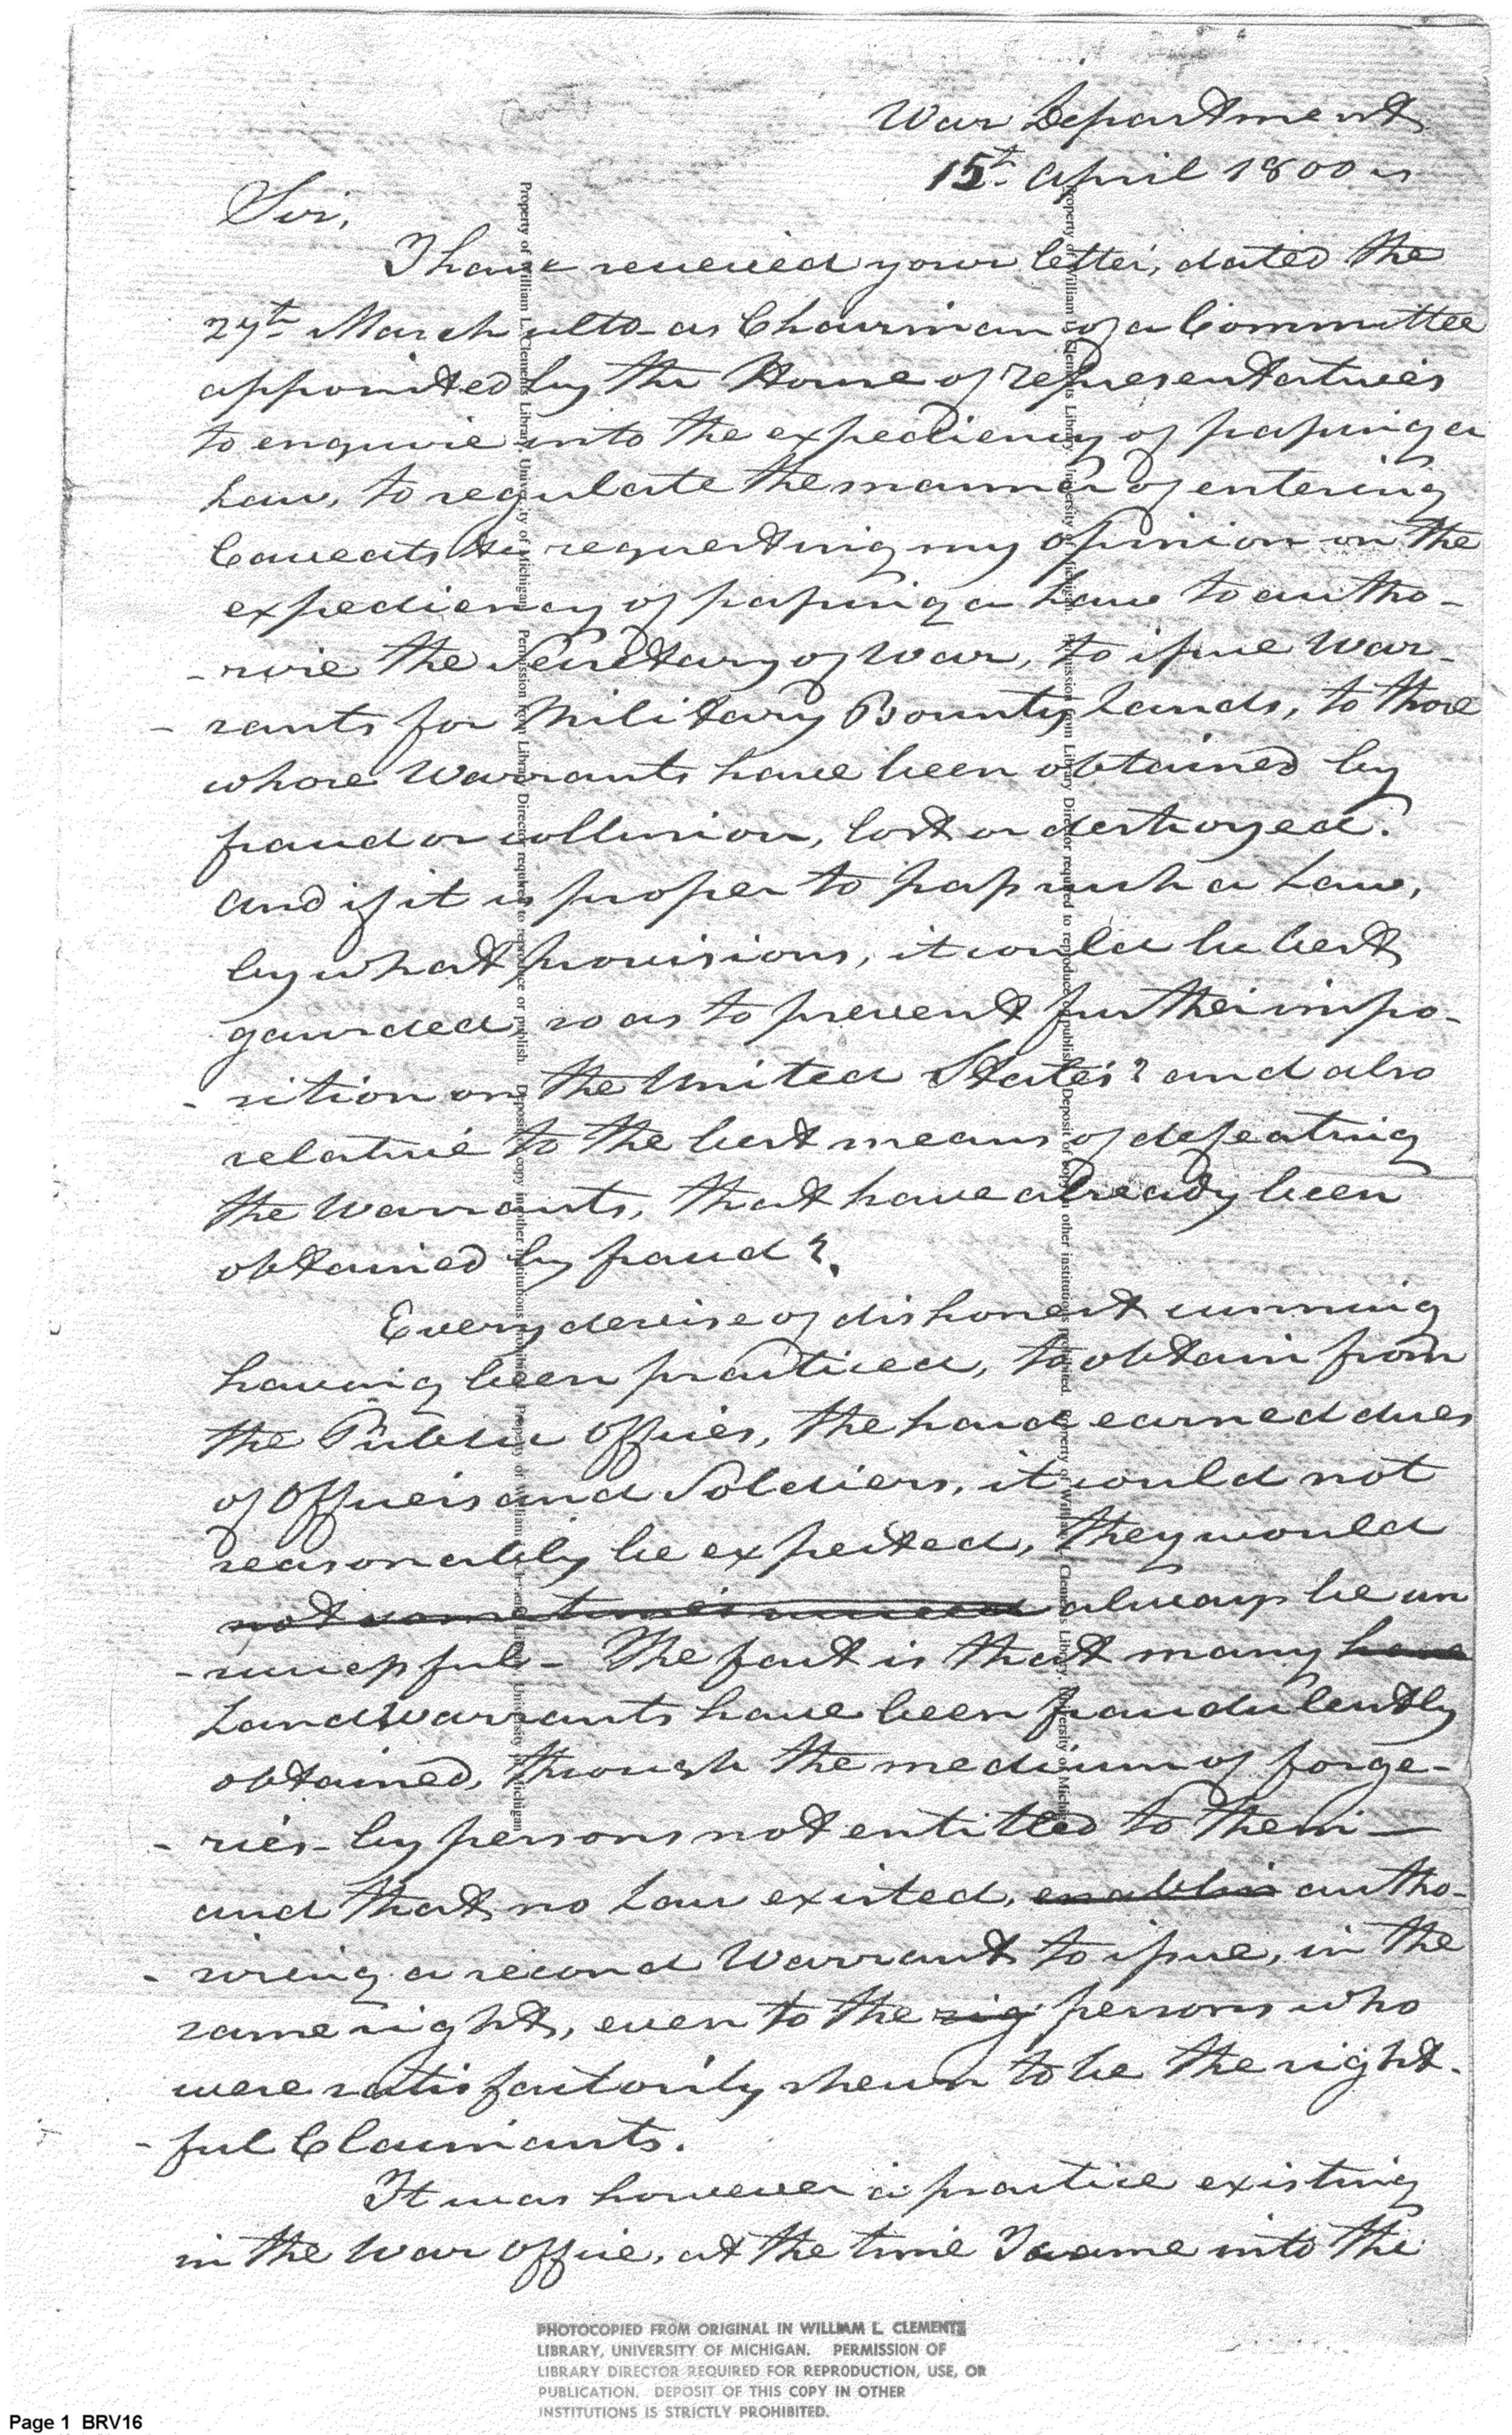 War Department
15th April 1800
Sir,
I have received your letter, dated the
27th March ulto as Chairman of a Committee
appointed by the House of representatives
to enquire into the expediency of passing a
Law, to regulate the manner of entering
Caveats &c requesting my opinion on the
expediency of passing a Law to autho-
-rise the Secretary of War, to issue War-
-rants for Military Bounty Lands, to those
whose Warrants have been obtained by
fraud or collusion, lost or destroyed.
And if it is proper to pass such a Law,
by what provisions, it could be best
gaurded, so as to prevent further impo-
-sition on the United States? and also
relative to the best means of defeating
the Warrants, that have already been
obtained by fraud?
Every devise of dishonest cunning
having been practiced, to obtain from
the Public Offices, the hard earned dues
of Officers and Soldiers, it could not
reasonably be expected, they would
not sometimes succeed always be un
-successful- The fact is that many have
Land Warrants have been fraudulently
obtained, through the medium of forge-
-ries- by persons not entitled to them-
and that, no Law existed, autho-
-rising a second Warrant to issue, in the
same right, even to the rig persons who
were satisfactorily shewn to be the right-
-ful Claimants.
It was however a practice existing
in the War Office, at the time I came into the
Property of William L. Clements Library, University of Michigan. Permission from Library Director required to reproduce or publish. Deposit of copy in other institutions prohibited. Property of William L. Clements Library, University of Michigan
Property of William L. Clements Library, University of Michigan. Permission from Library Director required to reproduce or publish. Deposit of copy in other institutions prohibited. Property of William L. Clements Library, University of Michigan
PHOTOCOPIED FROM ORIGINAL IN WILLIAM L. CLEMENTS
LIBRARY, UNIVERSITY OF MICHIGAN. PERMISSION OF
LIBRARY DIRECTOR REQUIRED FOR REPRODUCTION, USE, OR
PUBLICATION. DEPOSIT OF THIS COPY IN OTHER
INSTITUTIONS IS STRICTLY PROHIBITED.
Page 1 BRV16